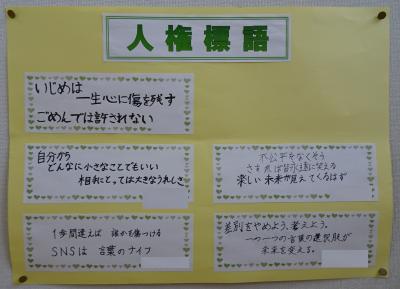 人権標語
いじめは
一生心に傷を残す
ごめんでは許されない
自分から
どんなに小さなことでもいい
相手にとっては大きなうれしさ
不公平をなくそう
さすれば皆永遠に笑える
楽しい未来が見えてくるはず
1歩間違えば 誰かを傷つける
SNSは 言葉のナイフ
差別をやめよう、考えよう。
一つ一つの言葉の選択肢が
未来を変える。